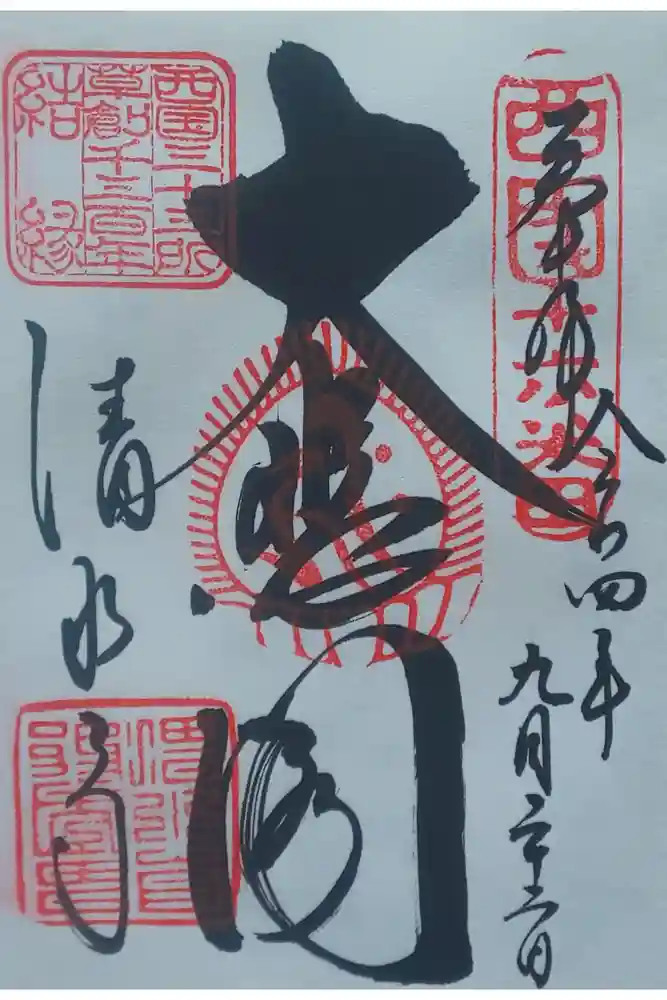 西国十六番
奉拝
令和四年
九月二十
大悲閣
西国三十三所
草創千三百年
結縁
清水寺